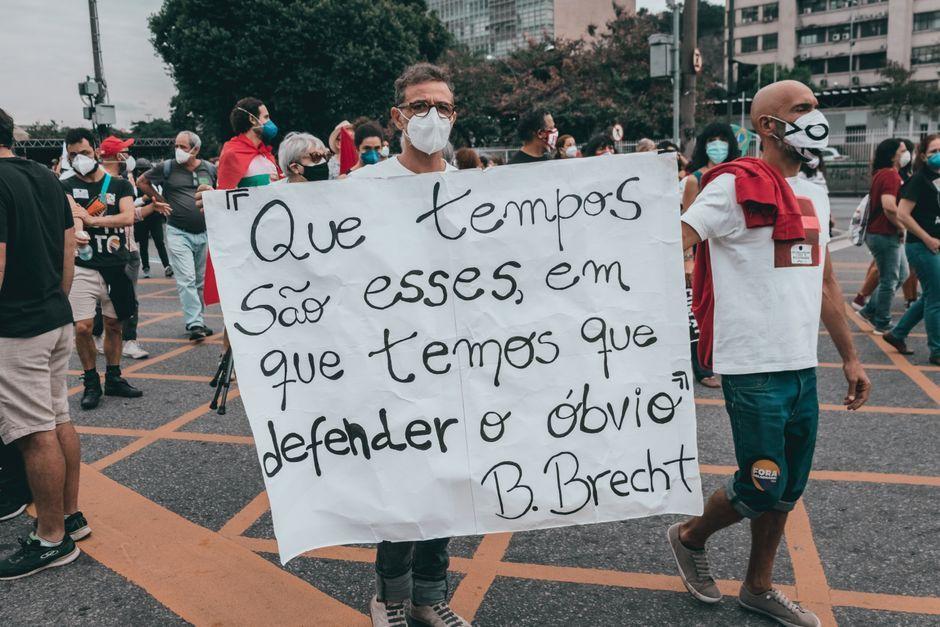 "Que tempos
são esses, em
que temos que
defender o óbvio"
B. Brecht
FORA